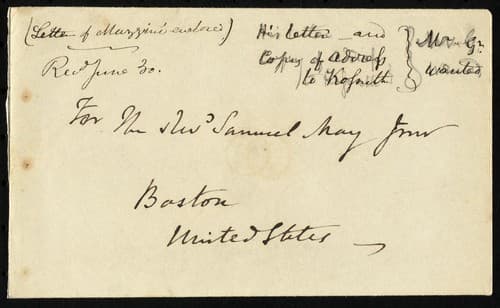 (Letter of Mazzini enclosed)
Recd June 30.
His letter and
Copy of address
to Kossuth
} Mr. G.
wanted
For The Revd Samuel May Junr
Boston
United States